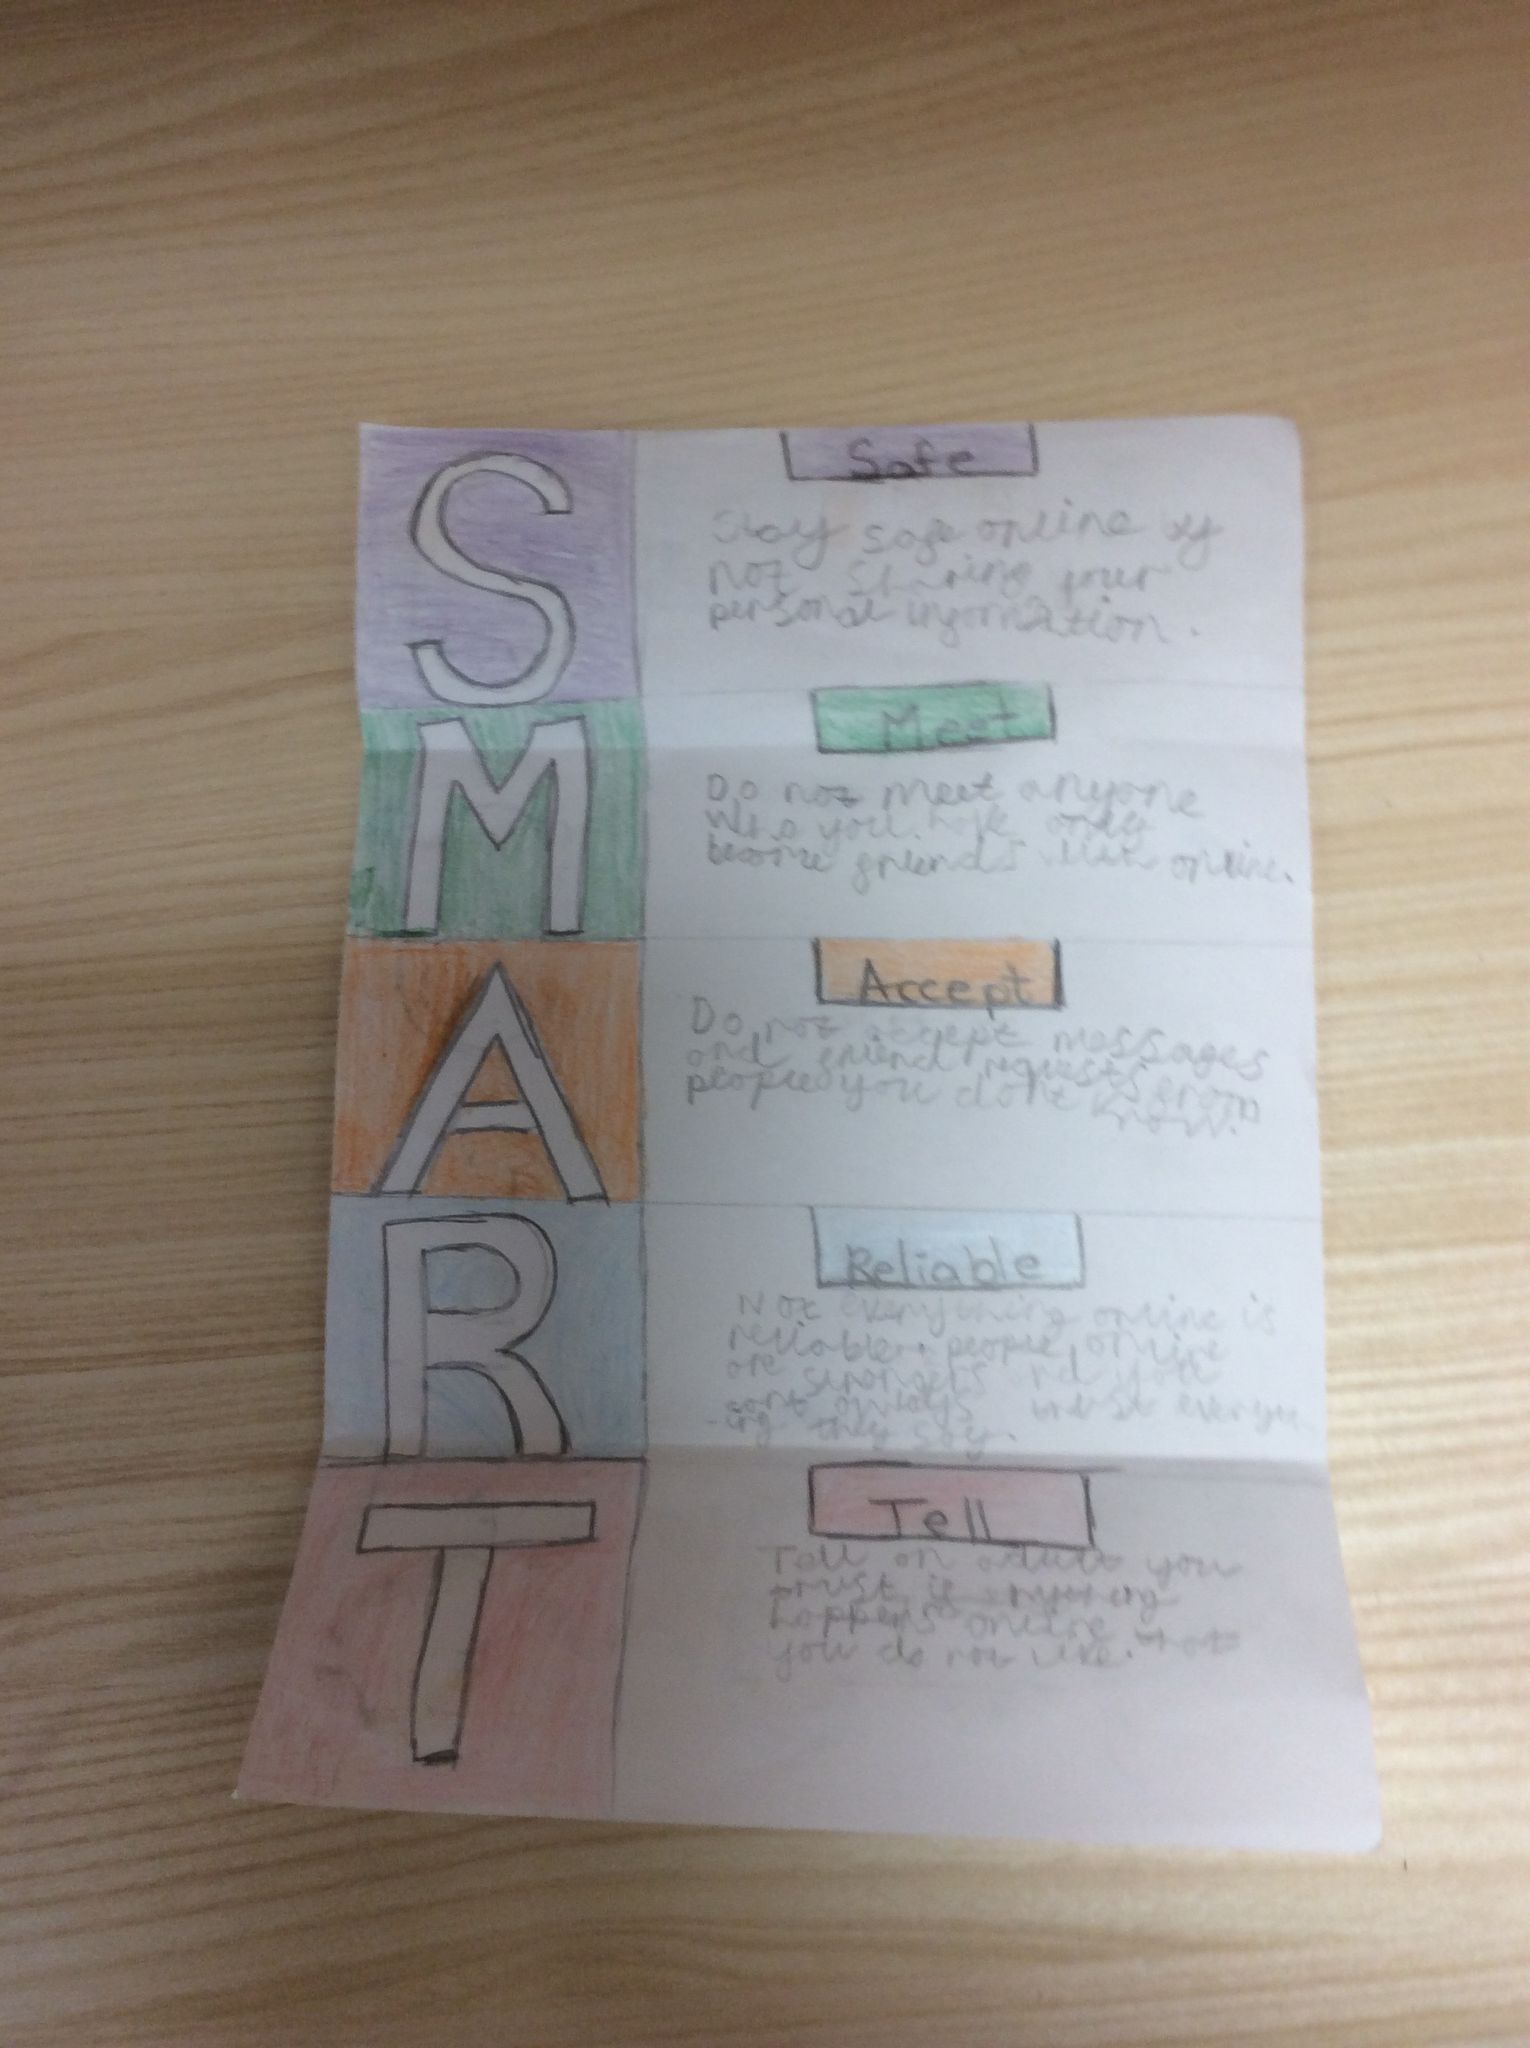 S
Safe
Stay safe online by
not sharing your
personal information.
M
Meet
Do not meet anyone
who you have only
become friends with online.
A
Accept
Do not accept messages
and friend requests from
people you dont know.
R
Reliable
Not everything online is
reliable. people online
are strangers and you
cant always trust everyth
-ing they say.
T
Tell
Tell an adult you
trust if anything
happens online that
you do not like.